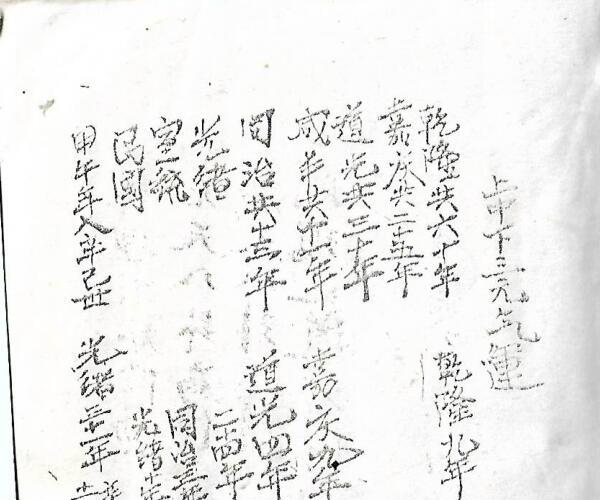 上中下三元氣運
乾隆共六十年 乾隆九年
嘉庆共二十五年
道光共三十年
咸丰共十一年 嘉庆九年
同治共十三年 道光四年
光緒 二四年
宣统 同治三年
民國 光緒十年
甲午年入 光緒三十一年